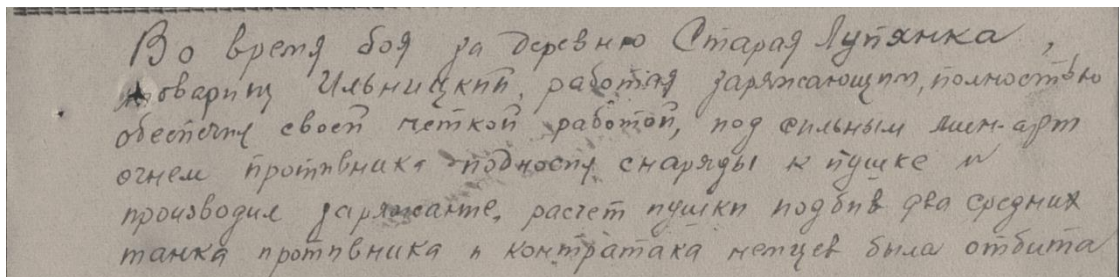 Во время боя за деревню Старая Лупянка,
товарищ Ильницкий, работая заряжающим, полностью
обеспечил своей четкой работой, под сильным мин-арт
огнем противника подносил снаряды к пушке и
производил заряжание, расчет пушки подбив два средних
танка противника и контратака немцев была отбита